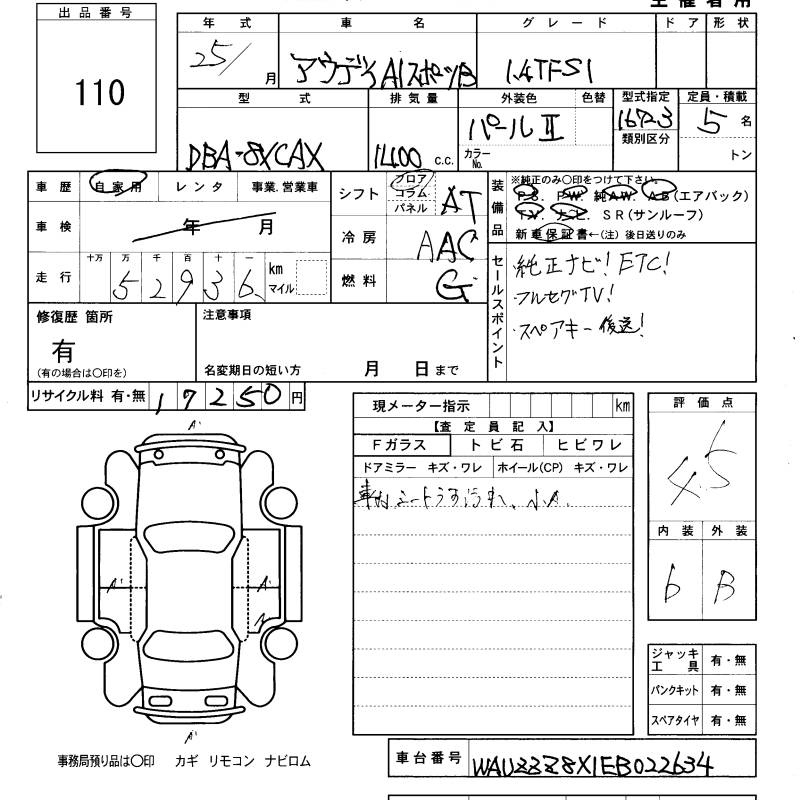 出品番号
110
年式 車名 グレード ドア 形状
25/ 月 アウディ A1スポーツB 1.4TFSI
型式 排気量 外装色 色替 型式指定 定員・積載
DBA-8XCAX 1400 c.c. パールⅡ 16723 5 名
カラーNo. 類別区分 トン
車歴 自家用 レンタ 事業.営業車
シフト フロア コラム パネル AT
装備品 ※純正のみ○印をつけて下さい。
P.S. P.W. 純A.W. A.B(エアバック)
T.V. S R(サンルーフ)
新車保証書←(注) 後日送りのみ
車検 年 月
冷房 AAC
走行 十万 万 千 百 十 一 km マイル
52936
燃料 G
セールスポイント
純正ナビ! ETC!
・フルセグTV!
・スペアキー 後送!
修復歴 箇所
有
(有の場合は○印を)
注意事項
名変期日の短い方 月 日まで
リサイクル料 有・無 17250 円
現メーター指示 km
【査定員記入】
Fガラス トビ石 ヒビワレ
ドアミラー キズ・ワレ ホイール(CP) キズ・ワレ
車内シートうす汚れ、小A.
評価点
4.5
内装 外装
b B
A'
A' A'
A'
ジャッキ工具 有・無
パンクキット 有・無
スペアタイヤ 有・無
事務局預り品は○印 カギ リモコン ナビロム
車台番号 WAUZZZ8X1EB022634